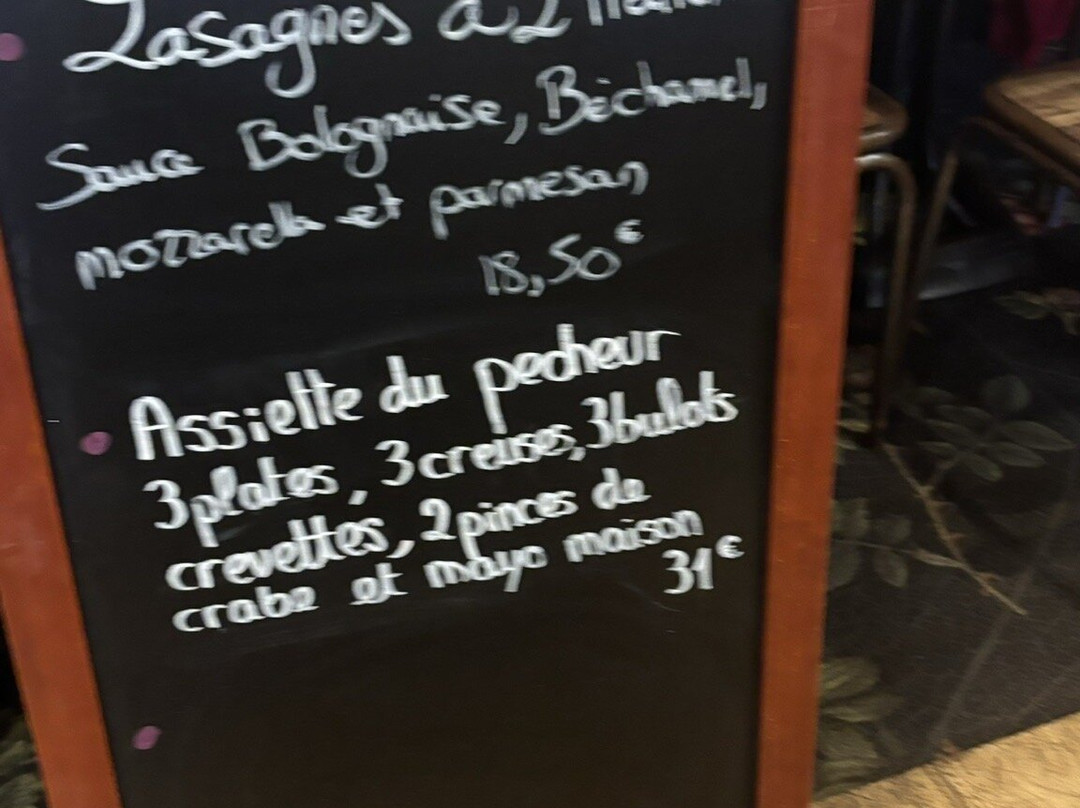 Lasagnes à l'
Sauce Bolognaise, Béchamel,
mozzarella et parmesan
18,50€
Assiette du pecheur
3 plates, 3 creuses, 3 bulots
crevettes, 2 pinces de
crabe et mayo maison
31€